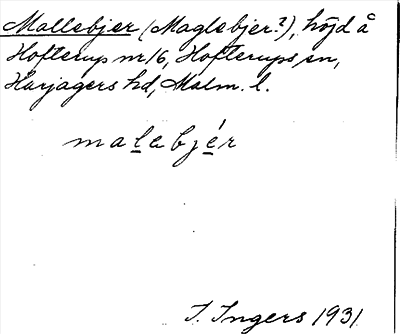 Mallebjer (Maglebjer?), höjd å
Hofterup nr 16, Hofterups sn,
Harjagers hd, Malm. l.
malebjér
I. Ingers 1931